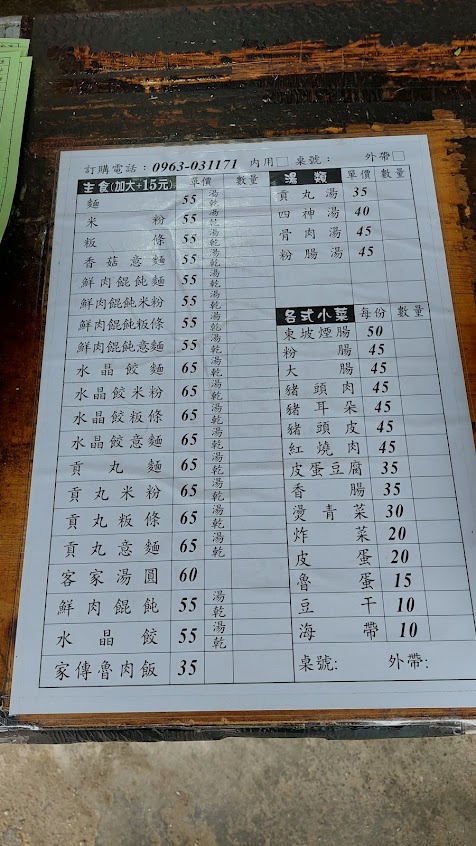 訂購電話：0963-031171 內用□ 桌號： 外帶□
主食(加大+15元) 單價 數量
麵 55 湯 乾
米粉 55 湯 乾
粄條 55 湯 乾
香菇意麵 55 湯 乾
鮮肉餛飩麵 55 湯 乾
鮮肉餛飩米粉 55 湯 乾
鮮肉餛飩粄條 55 湯 乾
鮮肉餛飩意麵 55 湯 乾
水晶餃麵 65 湯 乾
水晶餃米粉 65 湯 乾
水晶餃粄條 65 湯 乾
水晶餃意麵 65 湯 乾
貢丸麵 65 湯 乾
貢丸米粉 65 湯 乾
貢丸粄條 65 湯 乾
貢丸意麵 65 湯 乾
客家湯圓 60
鮮肉餛飩 55 湯 乾
水晶餃 55 湯 乾
家傳魯肉飯 35
湯類 單價 數量
貢丸湯 35
四神湯 40
骨肉湯 45
粉腸湯 45
各式小菜 每份 數量
東坡煙腸 50
粉腸 45
大腸 45
豬頭肉 45
豬耳朵 45
豬頭皮 45
紅燒肉 45
皮蛋豆腐 35
香腸 35
燙青菜 30
炸菜 20
皮蛋 20
魯蛋 15
豆干 10
海帶 10
桌號： 外帶：